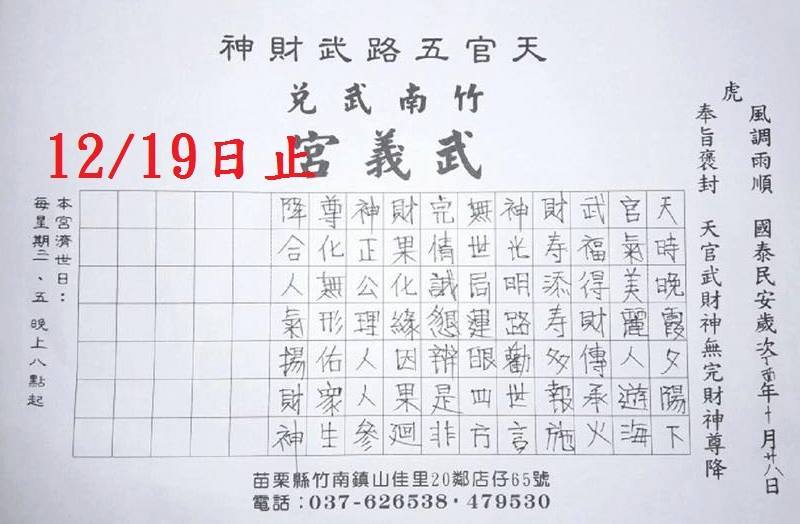 天官五路武財神
竹南武兌
武義宮
12/19日止
虎
風調雨順 國泰民安歲次丁酉年十月廿八日
奉旨褒封 天官武財神無完財神尊降
天時晚霞夕陽下
官氣美麗人遊海
武福得財傳承火
財寿添寿多報施
神光明路勸世言
無世局運眼四方
完情誠懇辨是非
財果化緣因果迴
神正公理人人參
尊化無形佑眾生
降合人氣揚財神
本宮濟世日：
每星期二、五 晚上八點起
苗栗縣竹南鎮山佳里20鄰店仔65號
電話：037-626538・479530